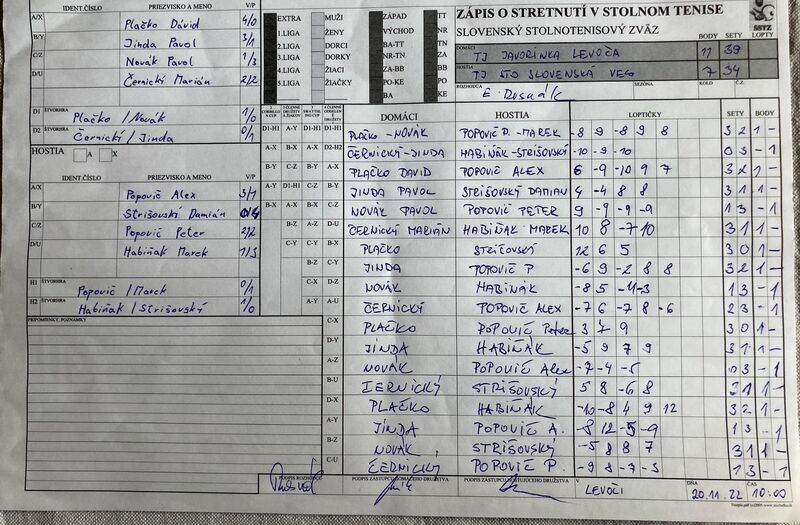 ZÁPIS O STRETNUTÍ V STOLNOM TENISE
SLOVENSKÝ STOLNOTENISOVÝ ZVÄZ
SSTZ
BODY SETY LOPTY
DOMÁCI TJ JAVORINKA LEVOČA 11 39
HOSTIA TJ STO SLOVENSKÁ VES 7 34
ROZHODCA SEZÓNA KOLO Č.Z.
EXTRA MUŽI ZÁPAD TT
1.LIGA ŽENY VÝCHOD TN
2.LIGA DORCI BA-TT
3.LIGA DORKY NR-TN ZA
4.LIGA ŽIACI ZA-BB BB
5.LIGA ŽIAČKY PO-KE PO
BA KE
IDENT.ČÍSLO PRIEZVISKO A MENO V/P
A/X Plačko Dávid 4/0
B/Y Jinda Pavol 3/1
C/Z Novák Pavol 1/3
D/U Černický Marián 2/2
D1 ŠTVORHRA Plačko / Novák 1/0
D2 ŠTVORHRA Černický / Jinda 0/1
HOSTIA A X
IDENT.ČÍSLO PRIEZVISKO A MENO V/P
A/X Popovič Alex 3/1
B/Y Strišovský Damián 0/4
C/Z Popovič Peter 2/2
D/U Habiňak Marek 1/3
H1 ŠTVORHRA Popovič / Marek 0/1
H2 ŠTVORHRA Habiňak / Strišovský 1/0
PRIPOMIENKY, POZNÁMKY
DOMÁCI HOSTIA LOPTIČKY SETY BODY
D1-H1 A-Y D1-H1 D1-H1 PLAČKO - NOVÁK POPOVIČ P. - MAREK -8 9 -8 9 8 3 2 1 -
A-X B-X A-X D2-H2 ČERNICKÝ - JINDA HABIŇÁK - STRIŠOVSKÝ -10 -9 -10 0 3 - 1
B-Y C-Z B-Y A-X PLAČKO DAVID POPOVIČ ALEX 6 -9 -10 9 7 3 2 1 -
A-Y D1-H1 C-Z B-Y JINDA PAVOL STRIŠOVSKÝ DAMIAN 4 -4 8 8 3 1 1 -
B-X A-X A-Y C-Z NOVÁK PAVOL POPOVIČ PETER 9 -9 -9 -9 1 3 - 1
B-Z D-U ČERNICKÝ MARIÁN HABIŇÁK MAREK 10 8 -7 10 3 1 1 -
C-X B-X PLAČKO STRIŠOVSKÝ 12 6 5 3 0 1 -
B-Z C-Y JINDA POPOVIČ P -6 9 -2 8 8 3 2 1 -
NOVÁK HABIŇÁK -8 5 -11 -3 1 3 - 1
C-Y A-U ČERNICKÝ POPOVIČ ALEX -7 6 -7 8 -6 2 3 - 1
C-X PLAČKO POPOVIČ Peter 3 7 9 3 0 1 -
D-Y JINDA HABIŇÁK -5 9 7 9 3 1 1 -
A-Z NOVÁK POPOVIČ Alex -7 -4 -5 0 3 - 1
B-U ČERNICKÝ STRIŠOVSKÝ 5 8 -6 8 3 1 1 -
D-X PLAČKO HABIŇÁK -10 -8 4 9 12 3 2 1 -
A-Y JINDA POPOVIČ A. -8 12 -5 -9 1 3 - 1
B-Z NOVÁK STRIŠOVSKÝ -5 8 8 7 3 1 1 -
C-U ČERNICKÝ POPOVIČ P. -9 8 -7 -5 1 3 - 1
PODPIS ROZHODCU PODPIS ZÁSTUPCU DOMÁCEHO DRUŽSTVA PODPIS ZÁSTUPCU HOSŤUJÚCEHO DRUŽSTVA V LEVOČI DŇA 20.11.22 ČAS 10:00